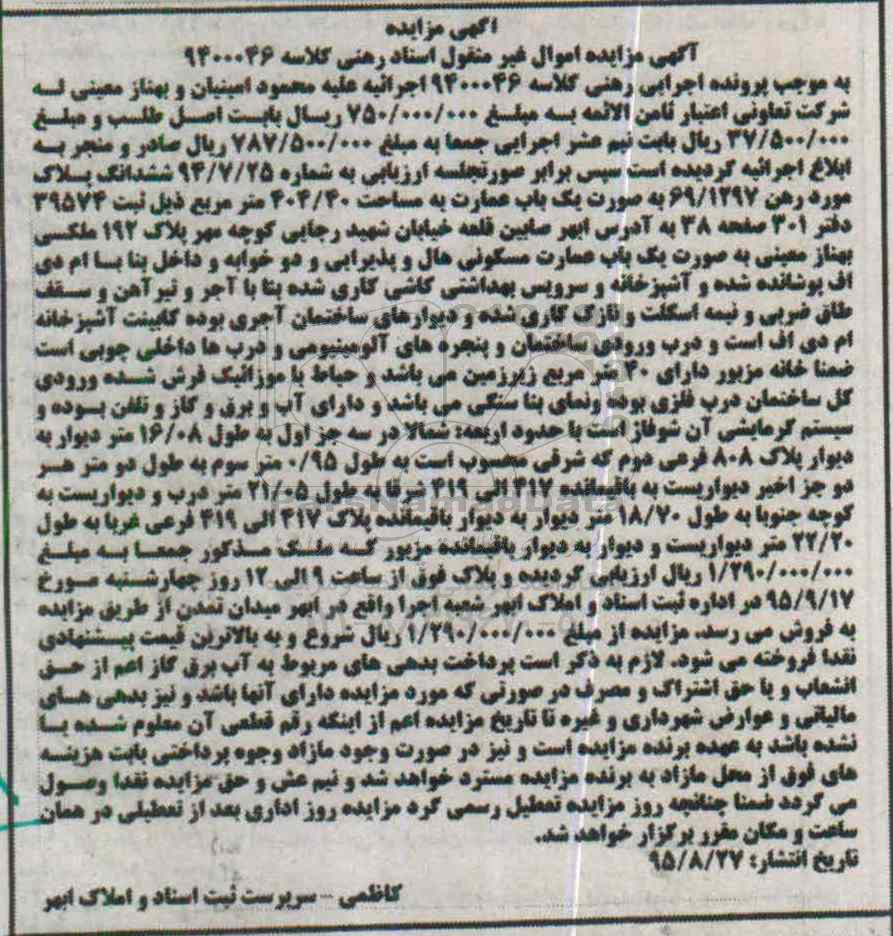 آگهی مزایده
آگهی مزایده اموال غیر منقول اسناد رهنی کلاسه ۹۴۰۰۰۴۶
به موجب پرونده اجرایی رهنی کلاسه ۹۴۰۰۰۴۶ اجرائیه علیه محمود امینیان و بهناز معینی لــه
شرکت تعاونی اعتبار ثامن الائمه بــه مبلــغ ۷۵۰/۰۰۰/۰۰۰ ریــال بابــت اصــل طلــب و مبلــغ
۳۷/۵۰۰/۰۰۰ ریال بابت نیم عشر اجرایی جمعا به مبلغ ۷۸۷/۵۰۰/۰۰۰ ریال صادر و منجر بــه
ابلاغ اجرائیه گردیده است سپس برابر صورتجلسه ارزیابی به شماره ۹۴/۷/۲۵ ششدانگ پــلاک
مورد رهن ۶۹/۱۲۹۷ به صورت یک باب عمارت به مساحت ۴۰۴/۴۰ متر مربع ذیل ثبت ۳۹۵۷۴
دفتر ۳۰۱ صفحه ۳۸ به آدرس ابهر صایین قلعه خیابان شهید رجایی کوچه مهر پلاک ۱۹۲ ملکــی
بهناز معینی به صورت یک باب عمارت مسکونی هال و پذیرایی و دو خوابه و داخل بنا بــا ام دی
اف پوشانده شده و آشپزخانه و سرویس بهداشتی کاشی کاری شده بنا با آجر و تیرآهن و ســقف
طاق ضربی و نیمه اسکلت و نازک کاری شده و دیوارهای ساختمان آجری بوده کابینت آشپزخانه
ام دی اف است و درب ورودی ساختمان و پنجره های آلومینیومی و درب ها داخلی چوبی است
ضمنا خانه مزبور دارای ۴۰ متر مربع زیرزمین می باشد و حیاط با موزائیک فرش شــده ورودی
کل ساختمان درب فلزی بوده ونمای بنا سنگی می باشد و دارای آب و برق و گاز و تلفن بــوده و
سیستم گرمایشی آن شوفاز است با حدود اربعه: شمالا در سه جز اول به طول ۱۶/۰۸ متر دیوار به
دیوار پلاک ۸۰۸ فرعی دوم که شرقی محسوب است به طول ۰/۹۵ متر سوم به طول دو متر هــر
دو جز اخیر دیواریست به باقیمانده ۴۱۷ الی ۴۱۹ شرقا به طول ۲۱/۰۵ متر درب و دیواریست به
کوچه جنوبا به طول ۱۸/۷۰ متر دیوار به دیوار باقیمانده پلاک ۴۱۷ الی ۴۱۹ فرعی غربا به طول
۲۲/۲۰ متر دیواریست و دیوار به دیوار باقیمانده مزبور کــه ملــک مــذکور جمعــا بــه مبلــغ
۱/۲۹۰/۰۰۰/۰۰۰ ریال ارزیابی گردیده و پلاک فوق از ساعت ۹ الی ۱۲ روز چهارشــنبه مــورخ
۹۵/۹/۱۷ در اداره ثبت اسناد و املاک ابهر شعبه اجرا واقع در ابهر میدان تمدن از طریق مزایده
به فروش می رسد. مزایده از مبلغ ۱/۲۹۰/۰۰۰/۰۰۰ ریال شروع و به بالاترین قیمت پیــشنهادی
نقدا فروخته می شود. لازم به ذکر است پرداخت بدهی های مربوط به آب برق گاز اعم از حــق
انشعاب و یا حق اشتراک و مصرف در صورتی که مورد مزایده دارای آنها باشد و نیز بدهی هــای
مالیاتی و عوارض شهرداری و غیره تا تاریخ مزایده اعم از اینکه رقم قطعی آن معلوم شــده یــا
نشده باشد به عهده برنده مزایده است و نیز در صورت وجود مازاد وجوه پرداختی بابت هزینــه
های فوق از محل مازاد به برنده مزایده مسترد خواهد شد و نیم عش و حق مزایده نقدا وصــول
می گردد ضمنا چنانچه روز مزایده تعطیل رسمی گرد مزایده روز اداری بعد از تعطیلی در همان
ساعت و مکان مقرر برگزار خواهد شد.
تاریخ انتشار: ۹۵/۸/۲۷
کاظمی - سرپرست ثبت اسناد و املاک ابهر